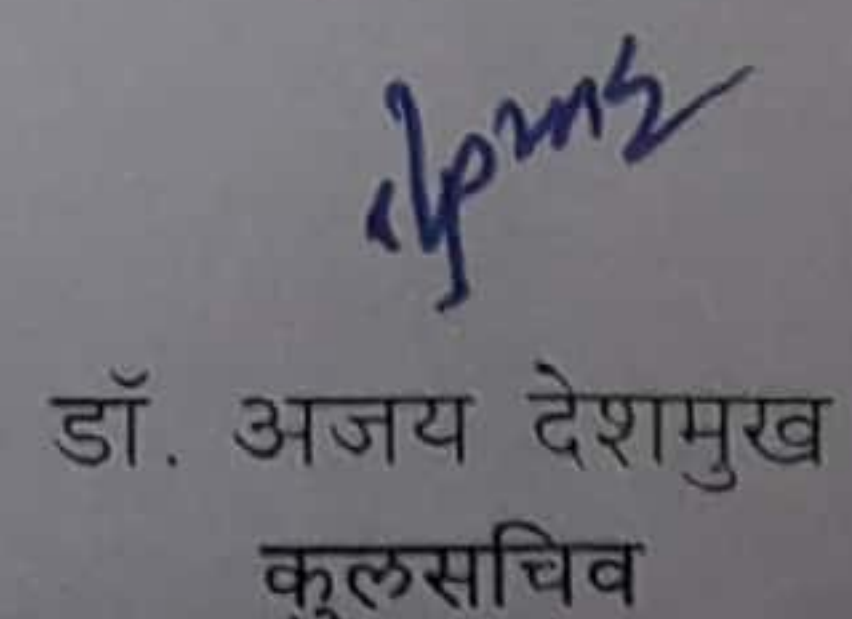 डॉ. अजय देशमुख
कुलसचिव